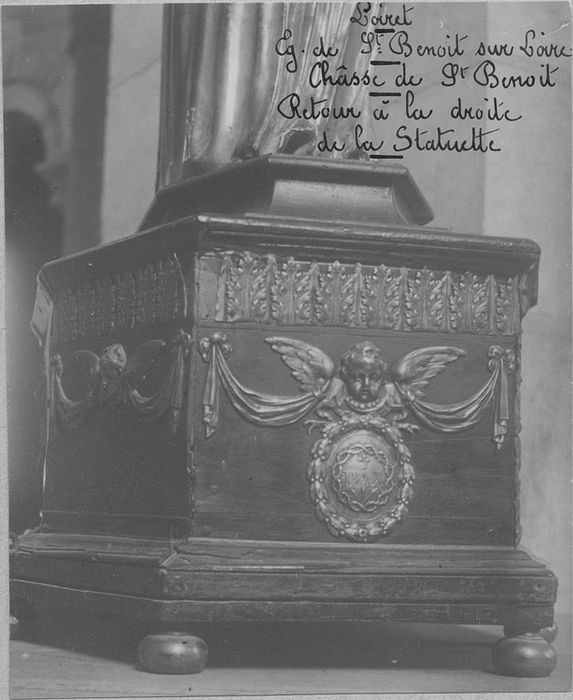 Loiret
Eg. de St Benoit sur Loire
Châsse de St Benoit
Retour à la droite
de la Statuette